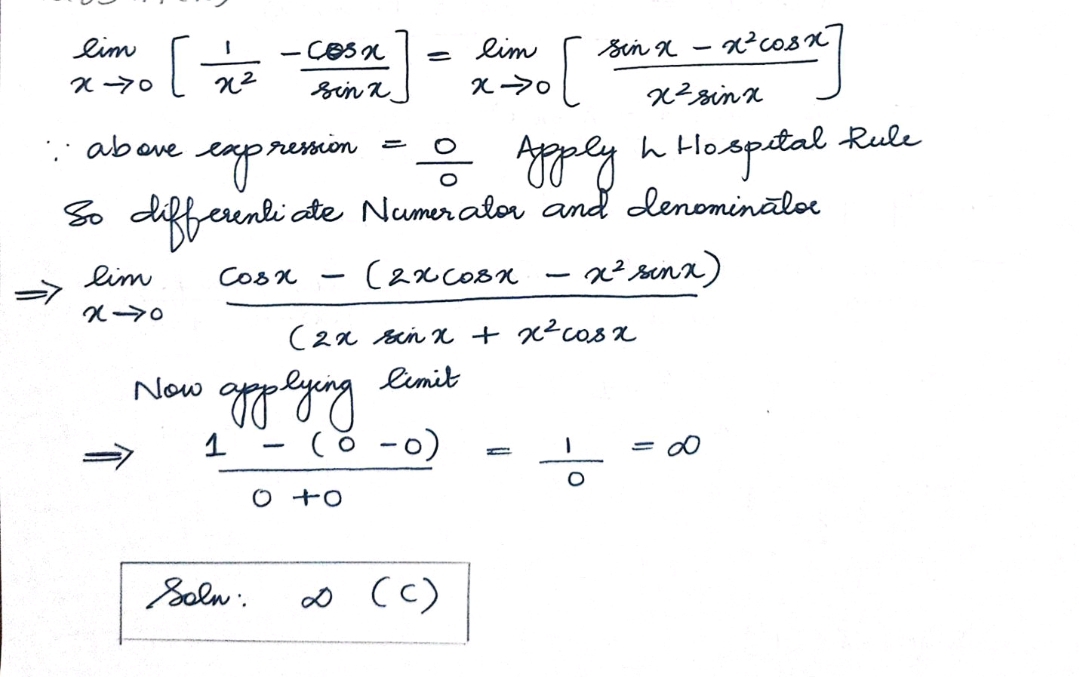 lim x→0 [ 1/x² - cosx/sinx ] = lim x→0 [ (sin x - x²cosx)/(x²sinx) ]
∵ above expression = 0/0 Apply h Hospital Rule
So differentiate Numerator and denominator
⇒ lim x→0 (cosx - (2xcosx - x²sinx))/((2x sin x + x²cosx
Now applying limit
⇒ (1 - (0 - 0))/(0 + 0) = 1/0 = ∞
Soln: ∞ (C)